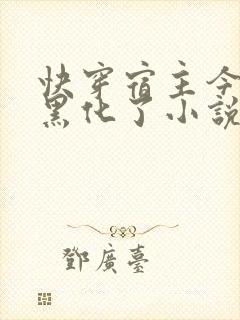 快穿宿主今
黑化了小說
鄧廣臺